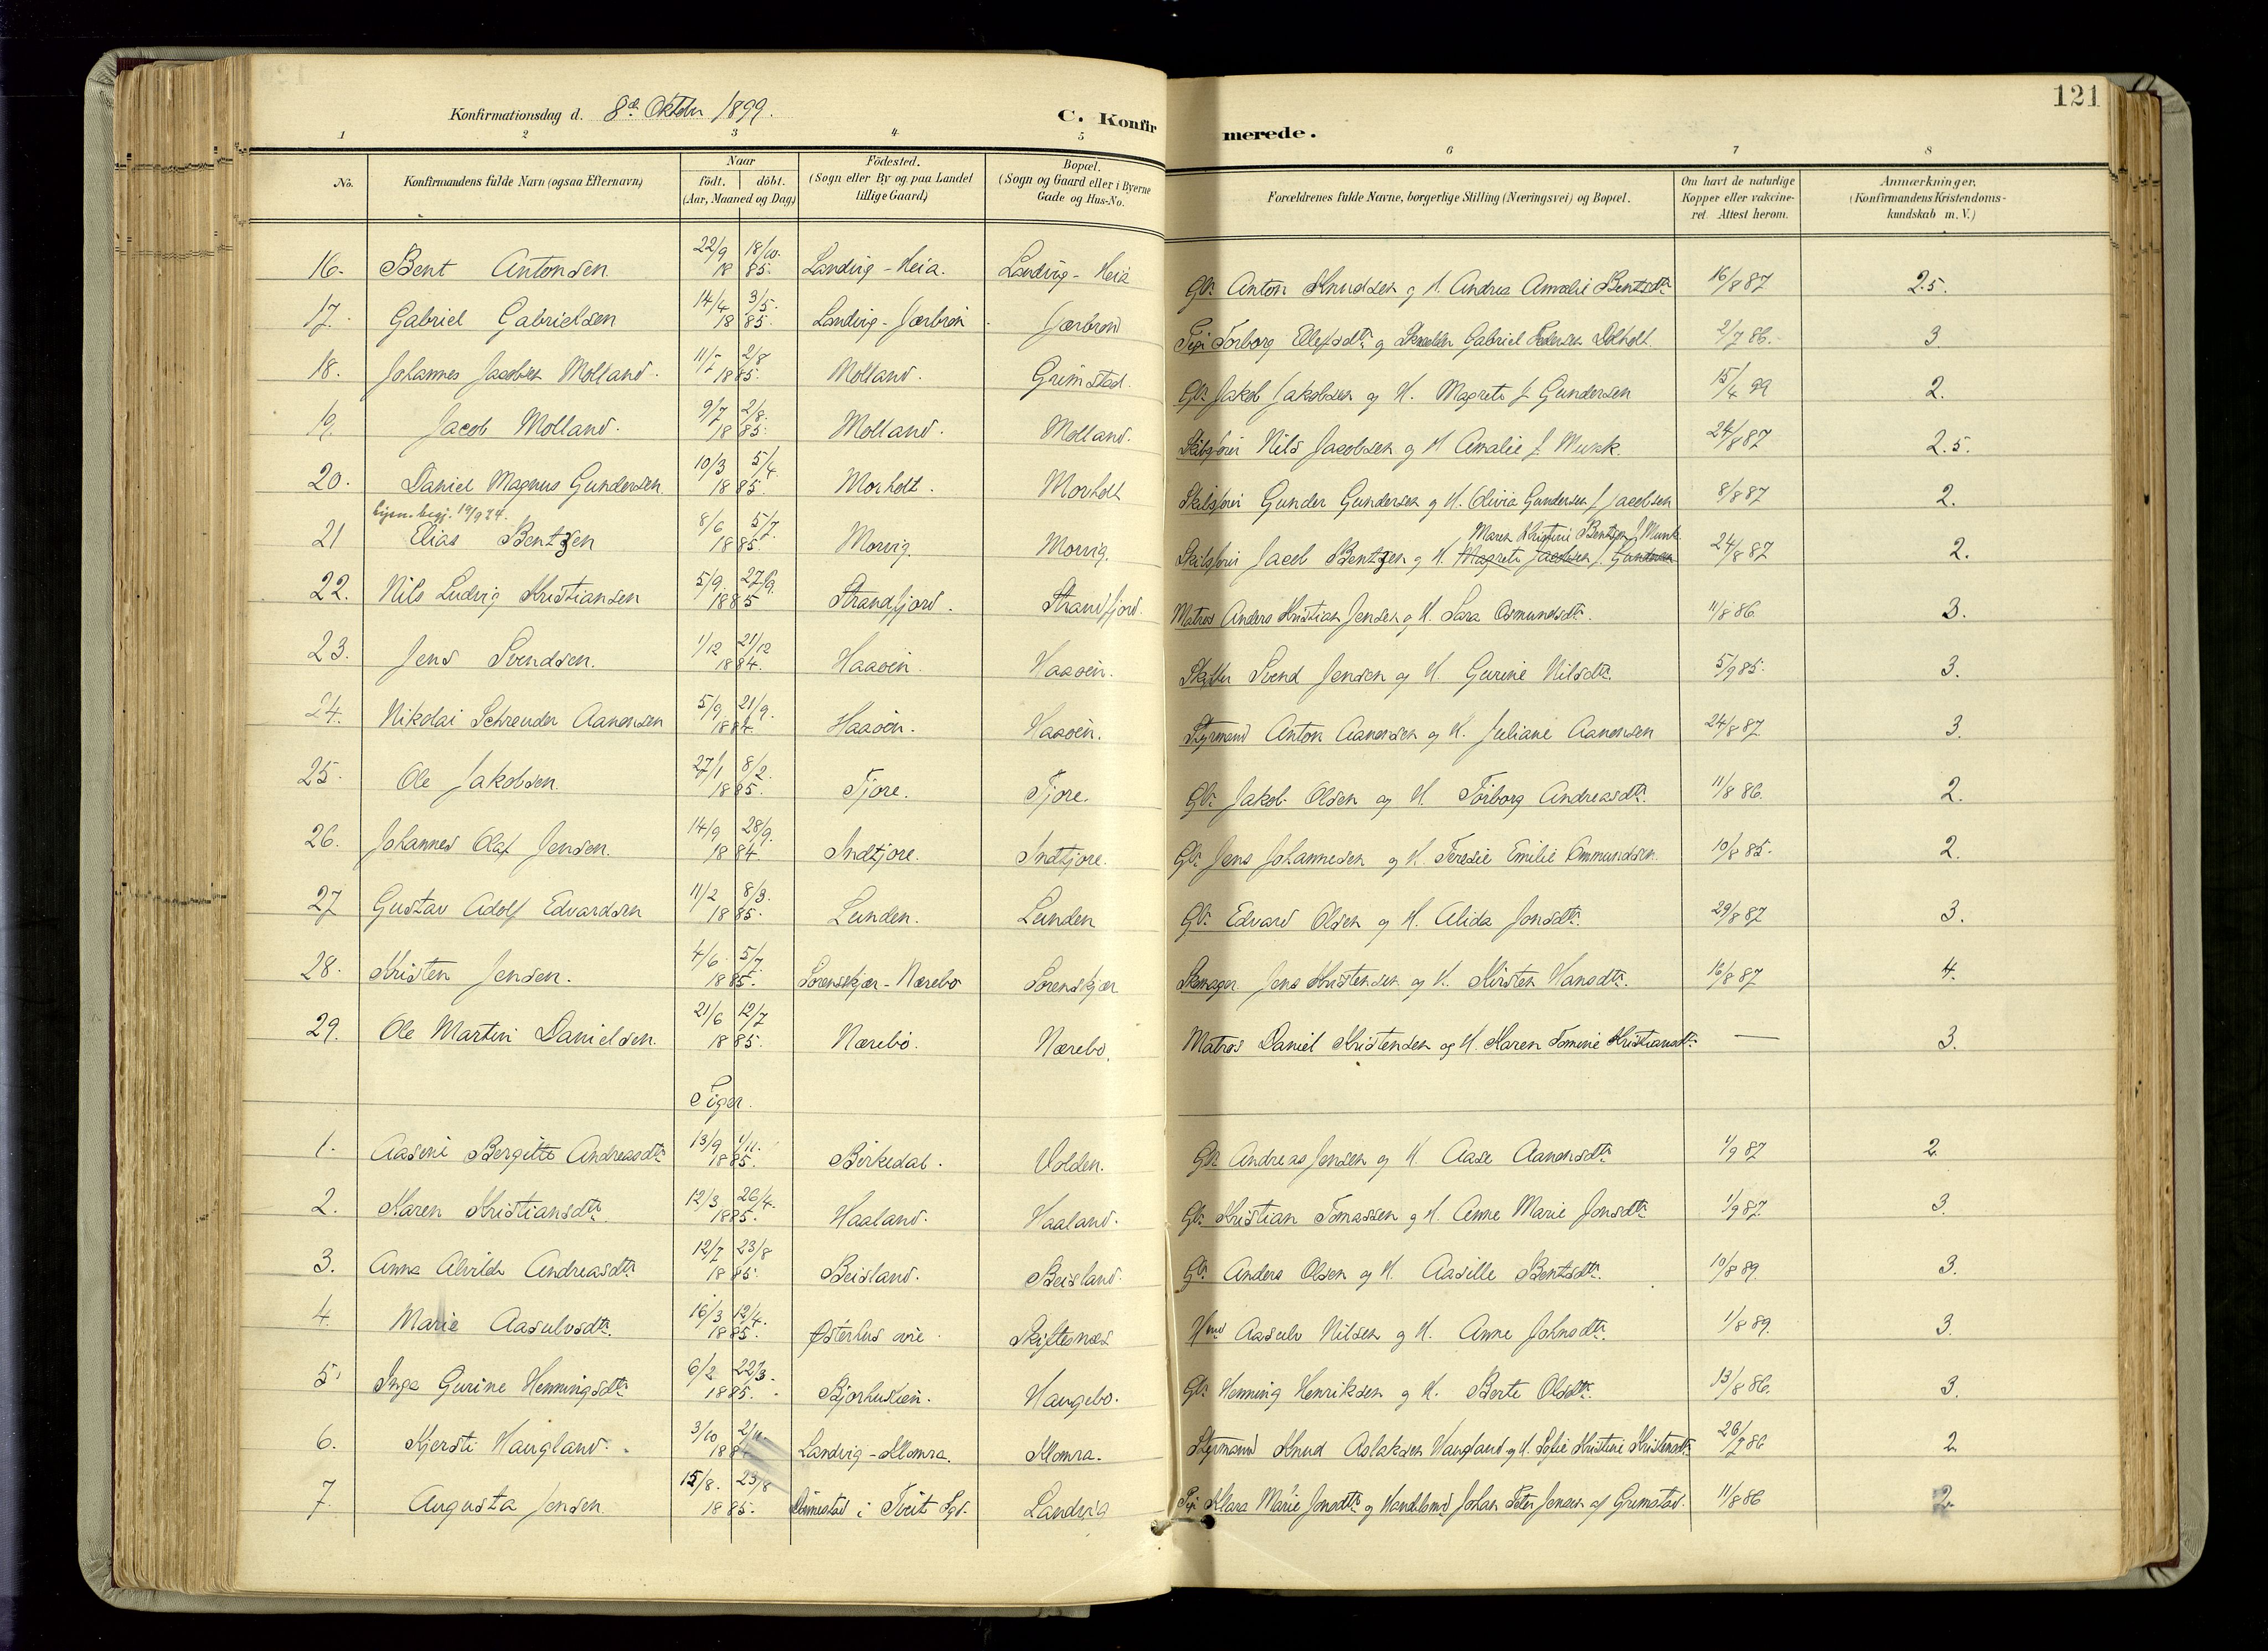 121
Konfirmationsdag d. 8de Oktober 1899.
C. Konfirmerede.
1 2 3 4 5 6 7 8
No. Konfirmandens fulde Navn (ogsaa Efternavn) Naar födt. döbt. (Aar, Maaned og Dag) Födested. (Sogn eller By og paa Landet tillige Gaard) Bopæl. (Sogn og Gaard eller i Byerne Gade og Hus-No. Forældrenes fulde Navne, borgerlige Stilling (Næringsvei) og Bopæl. Om havt de naturlige Kopper eller vakcineret. Attest herom. Anmærkninger. (Konfirmandens Kristendomskundskab m. V.)
16. Bent Antonsen 22/9 18/10. 1885. Landvig - Heia. Landvig - Heia Gbr. Anton Knudsen og H. Andrea Amalie Bentsdtr. 16/8 87 2.5.
17. Gabriel Gabrielsen 14/4 3/5. 1885. Landvig - Jærbron Jærbron Pige Torborg Ellefsdtr. og Gabriel Pedersen 2/7 86. 3.
18. Johannes Jacobsen Molland. 2/8 1885. Molland. Grimstad. Gbr. Jakob Jakobsen og H. Magrete f. Gundersen 15/4 99 2.
19. Jacob Molland. 9/7 2/8. 1885. Molland. Molland. Skibsfører Nils Jacobsen og H. Amalie f. Munk. 24/8 87 2.5.
20. Daniel Magnus Gundersen 10/3 5/4 1885. Morholt. Morholt Skibsfører Gunder Gundersen og H. Olivia Gundersen f. Jacobsen 8/8 87 2.
19/9 24.
21 Elias Bentzen 8/6 5/7. 1885. Morvig. Morvig. Skibsfører Jacob Bentzen og H. Magrete Jacobsen f. Gundersen Maren Kristine Bentsen f. Munk 24/8 87 2.
22. Nils Ludvig Kristiansen 5/9. 27/9. 1885 Strandfjord. Strandfjord. Matros Anders Kristian Jensen og H. Sara Osmundsdtr. 11/8 86. 3.
23. Jens Svendsen. 1/12 21/12 1884. Haaøen. Haaøen. Svend Jensen og H. Gurine Nilsdtr. 5/9 85. 3.
24. Nikolai Schreuder Aanonsen 5/9 21/9. 1884. Haaøen. Haaøen. Styrmand Anton Aanonsen og H. Juliane Aanonsen 24/8 87. 3.
25. Ole Jakobsen. 27/1 8/2. 1885. Tjore. Tjore. Gbr. Jakob Olsen og H. Torborg Andreasdtr. 11/8 86. 2.
26. Johannes Olaf Jensen. 14/9 28/9. 1884. Indtjore. Indtjore. Gbr. Jens Johannesen og H. Teresie Emilie Ommundsen. 10/8 85. 2.
27 Gustav Adolf Edvardsen 11/2 8/3. 1885. Lunden. Lunden Gbr. Edvard Olsen og H. Alida Jonsdtr. 29/8 87 3.
28. Kristen Jensen. 4/6. 5/7. 1885. Sorenskjær - Nærebo Sorenskjær Skomager Jens Kristensen og H. Kirsten Hansdtr. 16/8 87 4.
29. Ole Martin Danielsen. 21/6 12/7 1885. Nærebo. Nærebo. Matros Daniel Kristensen og H. Karen Tomine Kristiansdtr. — 3.
Piger.
1. Aasine Bergitte Andreasdtr. 13/9 1/11. 1885. Birkedal. Volden. Gbr. Andreas Jensen og H. Aase Aanonsdtr. 1/9 87 2.
2. Karen Kristiansdtr. 12/3 26/4. 1885. Haaland. Haaland. Gbr. Kristian Tomassen og H. Anne Marie Jonsdtr. 1/9 87. 3.
3. Anna Alvilde Andreasdtr. 12/7 23/8 1885. Beisland. Beisland. Gbr. Anders Olsen og H. Aasille Bentsdtr. 10/8 89. 3.
4. Marie Aasulvsdtr. 16/3 12/4. 1885. Østerhus øvre. Skiftenes Hmd. Aasulv Nilsen og H. Anne Johnsdtr. 1/8 89. 3.
5. Inga Gurine Henningsdtr. 6/2 22/3. 1885. Bjorhuslien. Haugebo. Gbr. Henning Henriksen og H. Berte Olsdtr. 13/8 86. 3.
6. Kjersti Haugland. 3/10 2/11. 1884 Landvig - Klomra. Klomra. Styrmand Knud Aslaksen Haugland og H. Sofie Kristine Kristensdtr. 2.
7. Augusta Jensen. 15/8. 23/8 1885. i Tveit Sgd. Landvig Pige Klara Marie Jonsdtr. og Handelsmd. Johan Peter Jensen af Grimstad. 11/8 86 2.